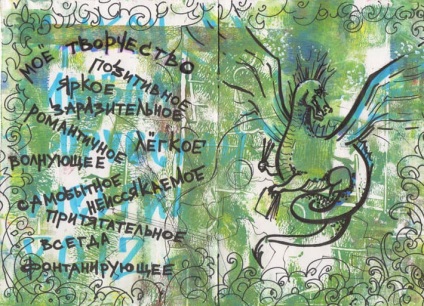 МОЁ ТВОРЧЕСТВО
ПОЗИТИВНОЕ
ЯРКОЕ
ЗАРАЗИТЕЛЬНОЕ
РОМАНТИЧНОЕ
ЛЁГКОЕ
ВОЛНУЮЩЕЕ
САМОБЫТНОЕ
НЕИССЯКАЕМОЕ
ПРИТЯГАТЕЛЬНОЕ
ВСЕГДА
ФОНТАНИРУЮЩЕЕ